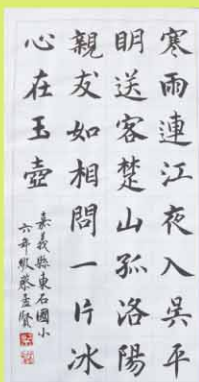 寒雨連江夜入吳平
明送客楚山孤洛陽
親友如相問一片冰
心在玉壺
嘉義縣東石國小
六年級蔡孟賢